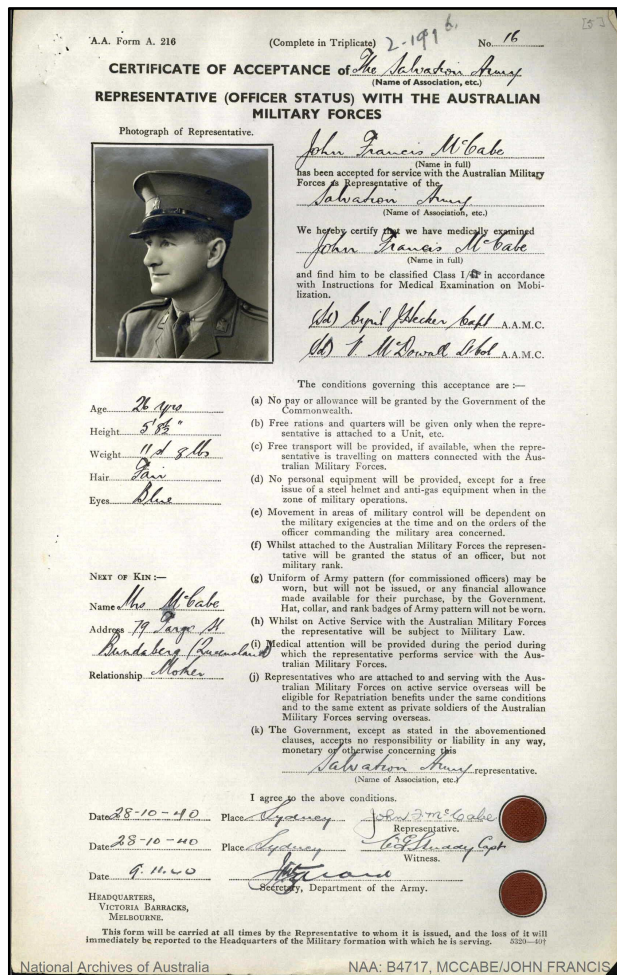 [5]
A.A. Form A. 216 (Complete in Triplicate) No. 16
CERTIFICATE OF ACCEPTANCE of The Salvation Army
(Name of Association, etc.)
REPRESENTATIVE (OFFICER STATUS) WITH THE AUSTRALIAN
MILITARY FORCES
Photograph of Representative.
John Francis McCabe
(Name in full)
has been accepted for service with the Australian Military
Forces as Representative of the
Salvation Army
(Name of Association, etc.)
We hereby certify that we have medically examined
John Francis McCabe
(Name in full)
and find him to be classified Class I/ in accordance
with Instructions for Medical Examination on Mobi-
lization.
(Sd) Cyril J Hecker Capt A.A.M.C.
(Sd) V. McDowall Lt Col A.A.M.C.
The conditions governing this acceptance are :—
Age 26 yrs
Height 5'
Weight 11 st 8 lbs
Hair Fair
Eyes Blue
(a) No pay or allowance will be granted by the Government of the
Commonwealth.
(b) Free rations and quarters will be given only when the repre-
sentative is attached to a Unit, etc.
(c) Free transport will be provided, if available, when the repre-
sentative is travelling on matters connected with the Aus-
tralian Military Forces.
(d) No personal equipment will be provided, except for a free
issue of a steel helmet and anti-gas equipment when in the
zone of military operations.
(e) Movement in areas of military control will be dependent on
the military exigencies at the time and on the orders of the
officer commanding the military area concerned.
(f) Whilst attached to the Australian Military Forces the represen-
tative will be granted the status of an officer, but not
military rank.
(g) Uniform of Army pattern (for commissioned officers) may be
worn, but will not be issued, or any financial allowance
made available for their purchase, by the Government.
Hat, collar, and rank badges of Army pattern will not be worn.
(h) Whilst on Active Service with the Australian Military Forces
the representative will be subject to Military Law.
(i) Medical attention will be provided during the period during
which the representative performs service with the Aus-
tralian Military Forces.
(j) Representatives who are attached to and serving with the Aus-
tralian Military Forces on active service overseas will be
eligible for Repatriation benefits under the same conditions
and to the same extent as private soldiers of the Australian
Military Forces serving overseas.
(k) The Government, except as stated in the abovementioned
clauses, accepts no responsibility or liability in any way,
monetary or otherwise concerning this
Salvation Army representative.
(Name of Association, etc.)
NEXT OF KIN :—
Name Mrs McCabe
Address 79 Targo St
Bundaberg (Queensland)
Relationship Mother
I agree to the above conditions.
Date 28-10-40 Place Sydney John F McCabe
Representative.
Date 28-10-40 Place Sydney Capt
Witness.
Date 9.11.40
Secretary, Department of the Army.
HEADQUARTERS,
VICTORIA BARRACKS,
MELBOURNE.
This form will be carried at all times by the Representative to whom it is issued, and the loss of it will
immediately be reported to the Headquarters of the Military formation with which he is serving. 5320—40†
National Archives of Australia NAA: B4717, MCCABE/JOHN FRANCIS